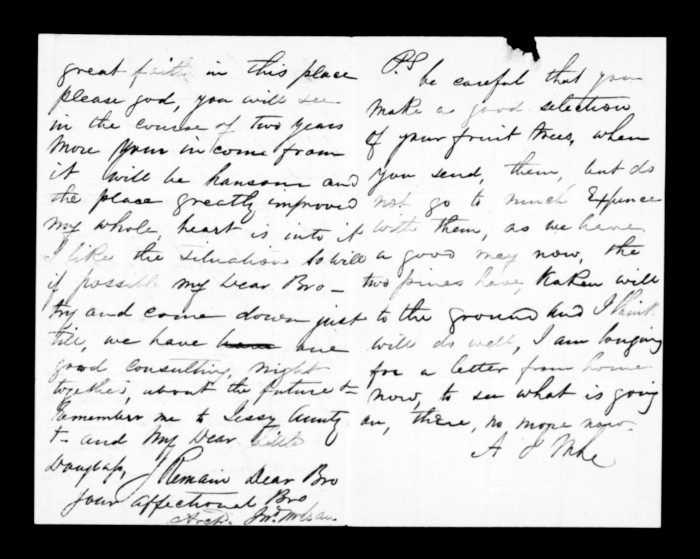 great faith in this place
please god, you will see
in the course of two years
more your income from
it will be hansom and
the place greatly improved
my whole, heart is into it
I like the situation so will
if possible my Dear Bro -
try and come down just
till, we have have one
good consulting, night
together, about the future &
Remember me to Jessy Aunty
& - and My Dear little
Douglass, I Remain Dear Bro
your affectional Bro
Arch. Jno.
P.S
be careful that you
make a good selection
of your fruit trees, when
you send, them, but do
not go to much Expence
with them, as we have
a good may now, the
two pines have, taken will
to the ground and I think
will do well, I am longing
for a letter from home
now, to see what is going
on, there, no more now.
A J